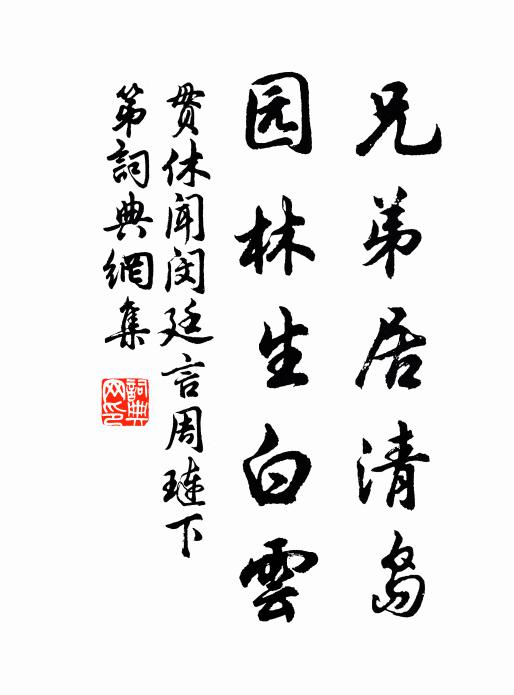 兄弟居清島
园林生白雲
貫休闻闵廷言周璉下
第詞典網集
詞典
网印